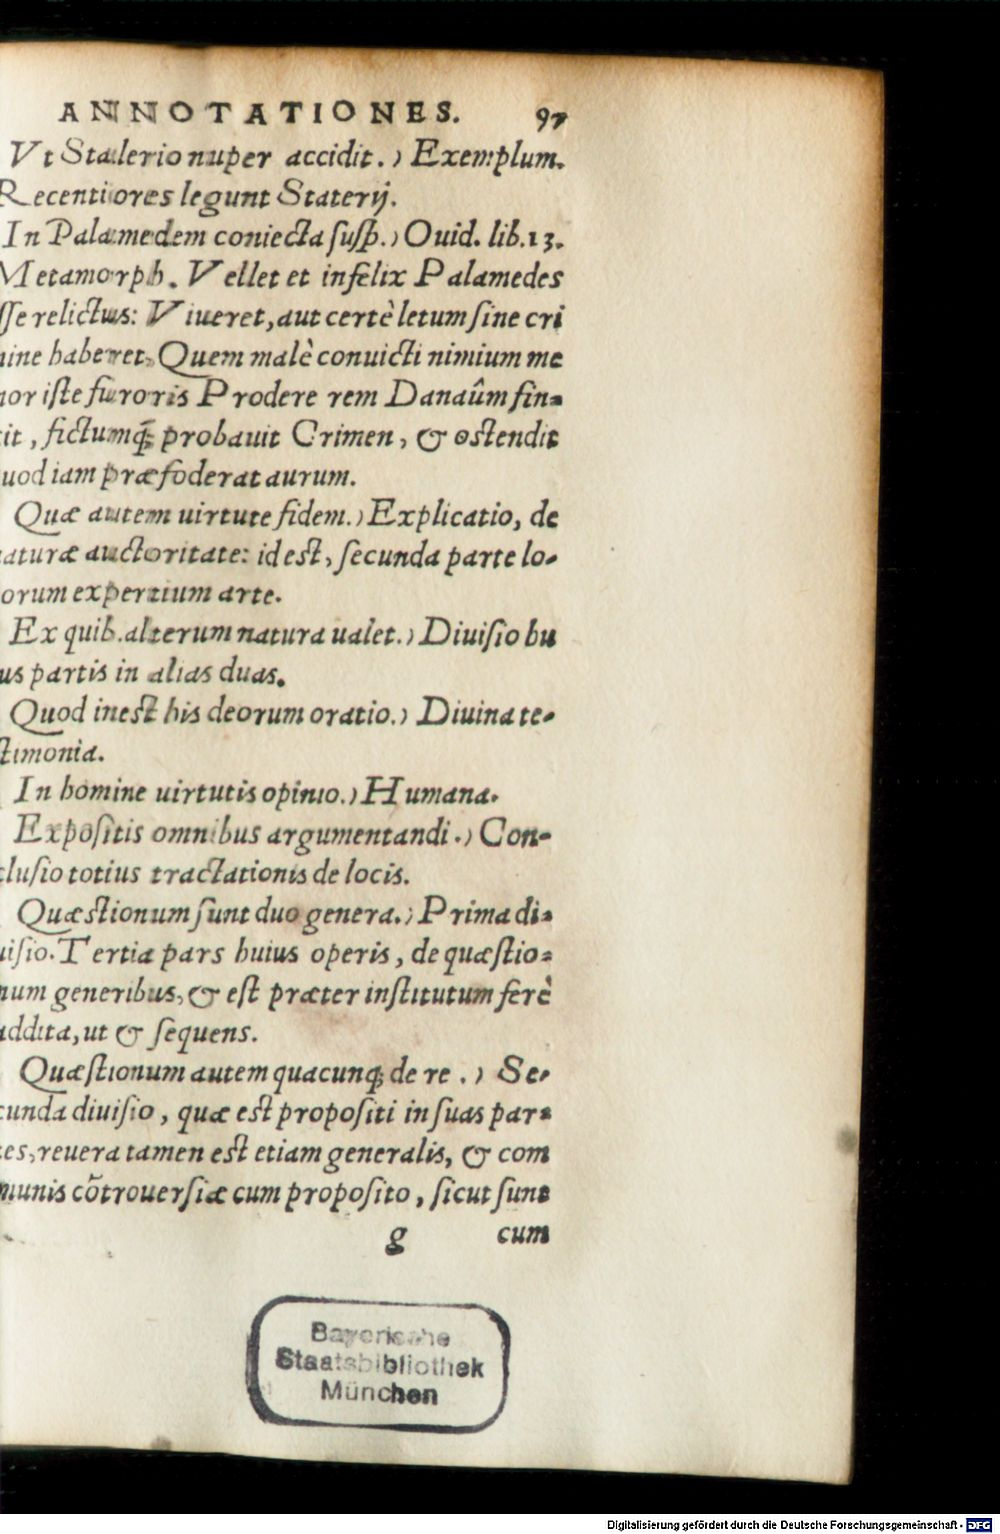 ANNOTATIONES. 97
Vt Stalerio nuper accidit.) Exemplum.
Recentiores legunt Staterij.
In Palamedem coniecta susp.) Ouid. lib.13.
Metamorph. Vellet et infelix Palamedes
sse relictus: Viueret, aut certè letum sine cri
mine haberet. Quem malè conuicti nimium me
mor iste furoris Prodere rem Danaûm fin-
it, fictumq́; probauit Crimen, & ostendit
uod iam præfoderat aurum.
Quæ autem uirtute fidem.) Explicatio, de
naturæ auctoritate: id est, secunda parte lo-
orum expertium arte.
Ex quib. alterum natura ualet.) Diuisio hu
us partis in alias duas.
Quod inest his deorum oratio.) Diuina te-
stimonia.
In homine uirtutis opinio.) Humana.
Expositis omnibus argumentandi.) Con-
clusio totius tractationis de locis.
Quæstionum sunt duo genera.) Prima di-
uisio. Tertia pars huius operis, de quæstio-
num generibus, & est præter institutum ferè
addita, ut & sequens.
Quæstionum autem quacunq; de re.) Se-
cunda diuisio, quæ est propositi in suas par-
tes, reuera tamen est etiam generalis, & com
munis cõtrouersiæ cum proposito, sicut sunt
g cum
Bayerische
Staatsbibliothek
München
Digitalisierung gefördert durch die Deutsche Forschungsgemeinschaft - DFG